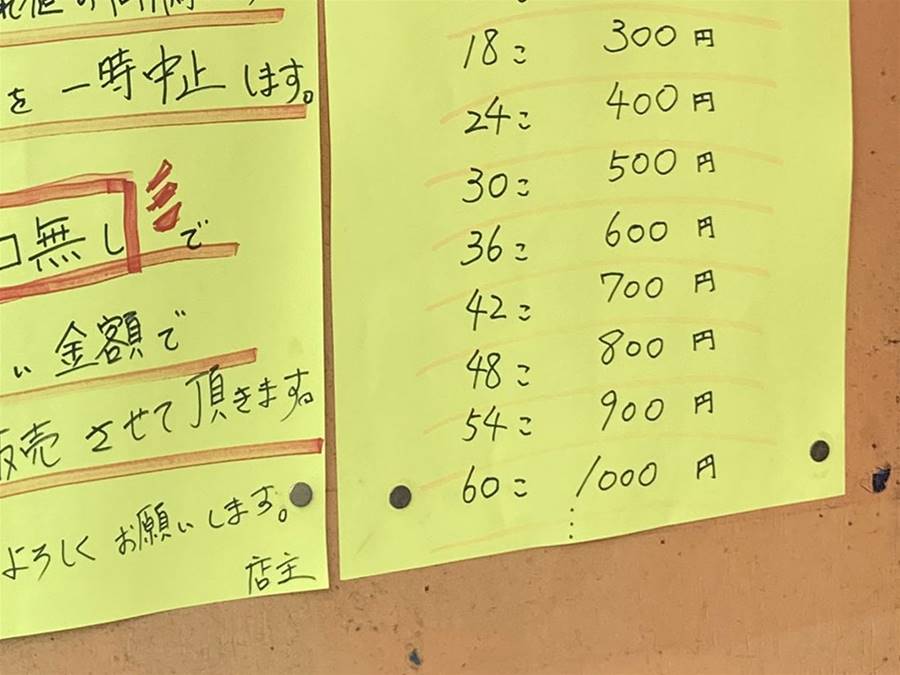 を一時中止します。
無しで
い金額で
販売させて頂きます。
よろしくお願いします。
店主
18こ 300円
24こ 400円
30こ 500円
36こ 600円
42こ 700円
48こ 800円
54こ 900円
60こ 1000円